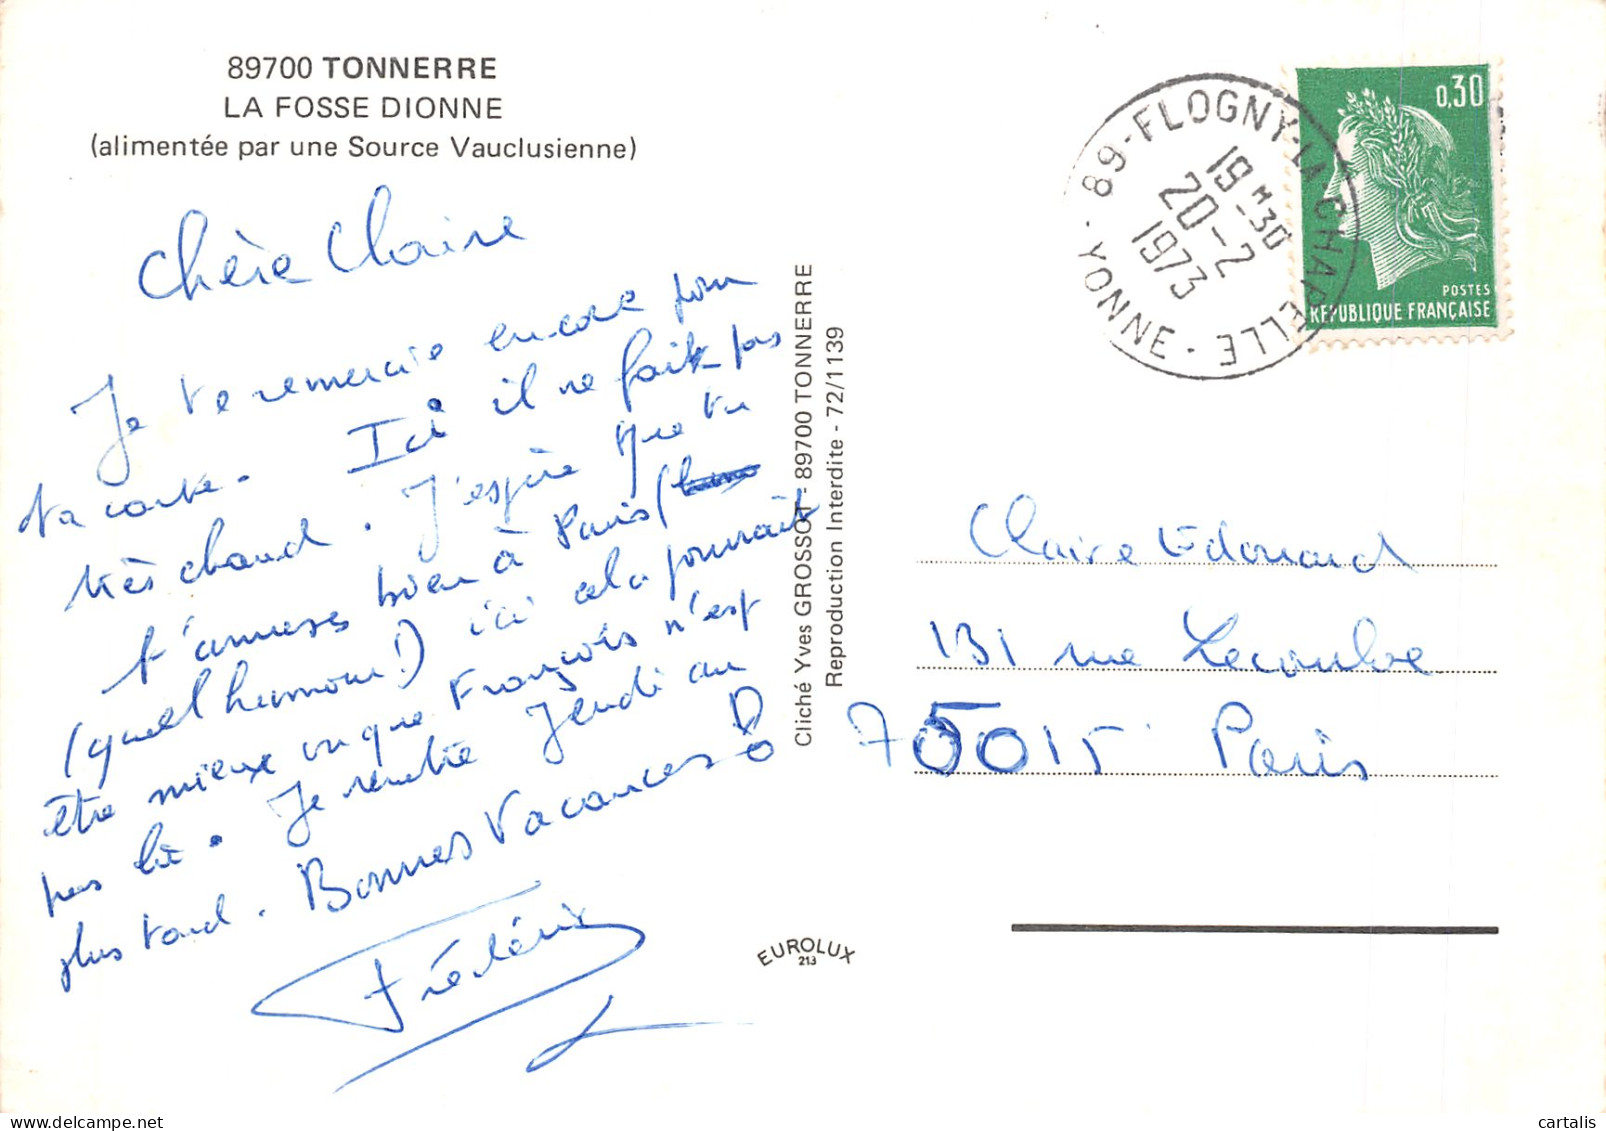 89700 TONNERRE
LA FOSSE DIONNE
(alimentée par une Source Vauclusienne)
Chère Claire
Je te remercie encore pour
ta carte. Ici il ne fait pas
très chaud. J'espère que tu
t'amuses bien à Paris
(quel humour!) ici cela pourrait
être mieux vu que François n'est
pas là. Je rentre Jeudi au
plus tard. Bonnes Vacances !
Frédéric
Cliché Yves GROSSOT - 89700 TONNERRE
Reproduction Interdite - 72/1139
EUROLUX
213
89-FLOGNY-LA-CHAPELLE
19H30
20-2
1973
YONNE
0,30
POSTES
REPUBLIQUE FRANÇAISE
Claire Edouard
131 rue Lecourbe
75015 Paris
cartalis